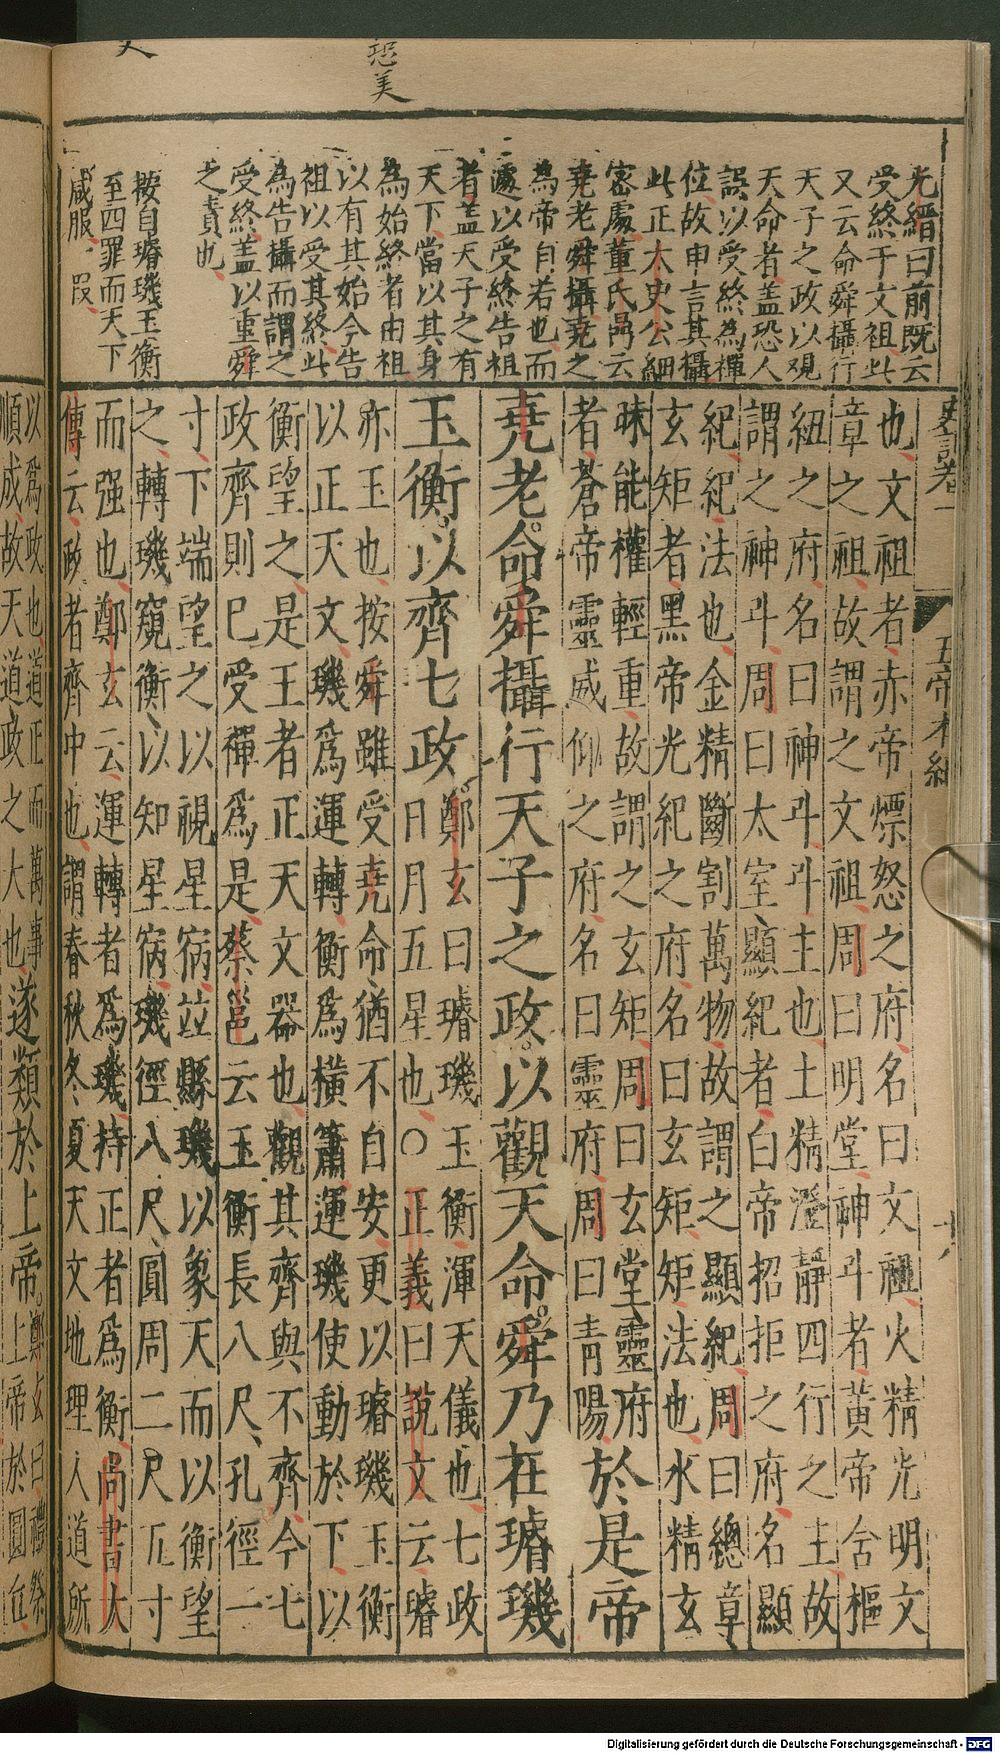 光縉曰前既云
受終于文祖此
又云命舜攝行
天子之政以觀
天命者蓋恐人
誤以受終為禪
位故申言其攝
此正太史公細
密處董氏昺云
堯老舜攝堯之
為帝自若也而
遽以受終告祖
者蓋天子之有
天下當以其身
為始終者由祖
以有其始今告
祖以受其終此
為告攝而謂之
受終蓋以重舜
之責也
按自璿璣玉衡
至四罪而天下
咸服
史記卷一
五帝本紀
也文祖者赤帝熛怒之府名曰文祖火精光明文
章之祖故謂之文祖周曰明堂神斗者黃帝含樞
紐之府名曰神斗斗主也土精澄靜四行之主故
謂之神斗周曰太室顯紀者白帝招拒之府名顯
紀紀法也金精斷割萬物故謂之顯紀周曰總章
玄矩者黑帝光紀之府名曰玄矩矩法也水精玄
昧能權輕重故謂之玄矩周曰玄堂靈府
者蒼帝靈威仰之府名曰靈府周曰青陽
於是帝
堯老命舜攝行天子之政以觀天命舜乃在璿璣
玉衡以齊七政
鄭玄曰璿璣玉衡渾天儀也七政
日月五星也○正義曰說文云璿
亦玉也按舜雖受堯命猶不自安更以璿璣玉衡
以正天文璣為運轉衡為橫簫運璣使動於下以
衡望之是王者正天文器也觀其齊與不齊今七
政齊則已受禪為是蔡邕云玉衡長八尺孔徑一
寸下端望之以視星宿竝縣璣以象天而以衡望
之轉璣窺衡以知星宿璣徑八尺圓周二尺五寸
而强也鄭玄云運轉者為璣持正者為衡尚書大
傳云政者齊中也謂春秋冬夏天文地理人道所
以為政也道正而萬事
順成故天道政之大也
遂類於上帝
鄭玄曰禮祭
上帝於圓丘
Digitalisierung gefördert durch die Deutsche Forschungsgemeinschaft - DFG